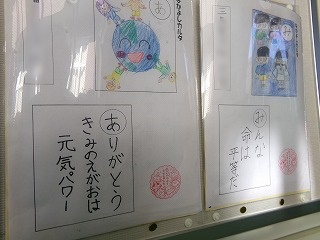 カルタ
あ
ありがとう
きみのえがおは
元気パワー
み
みんな
命は
平等だ